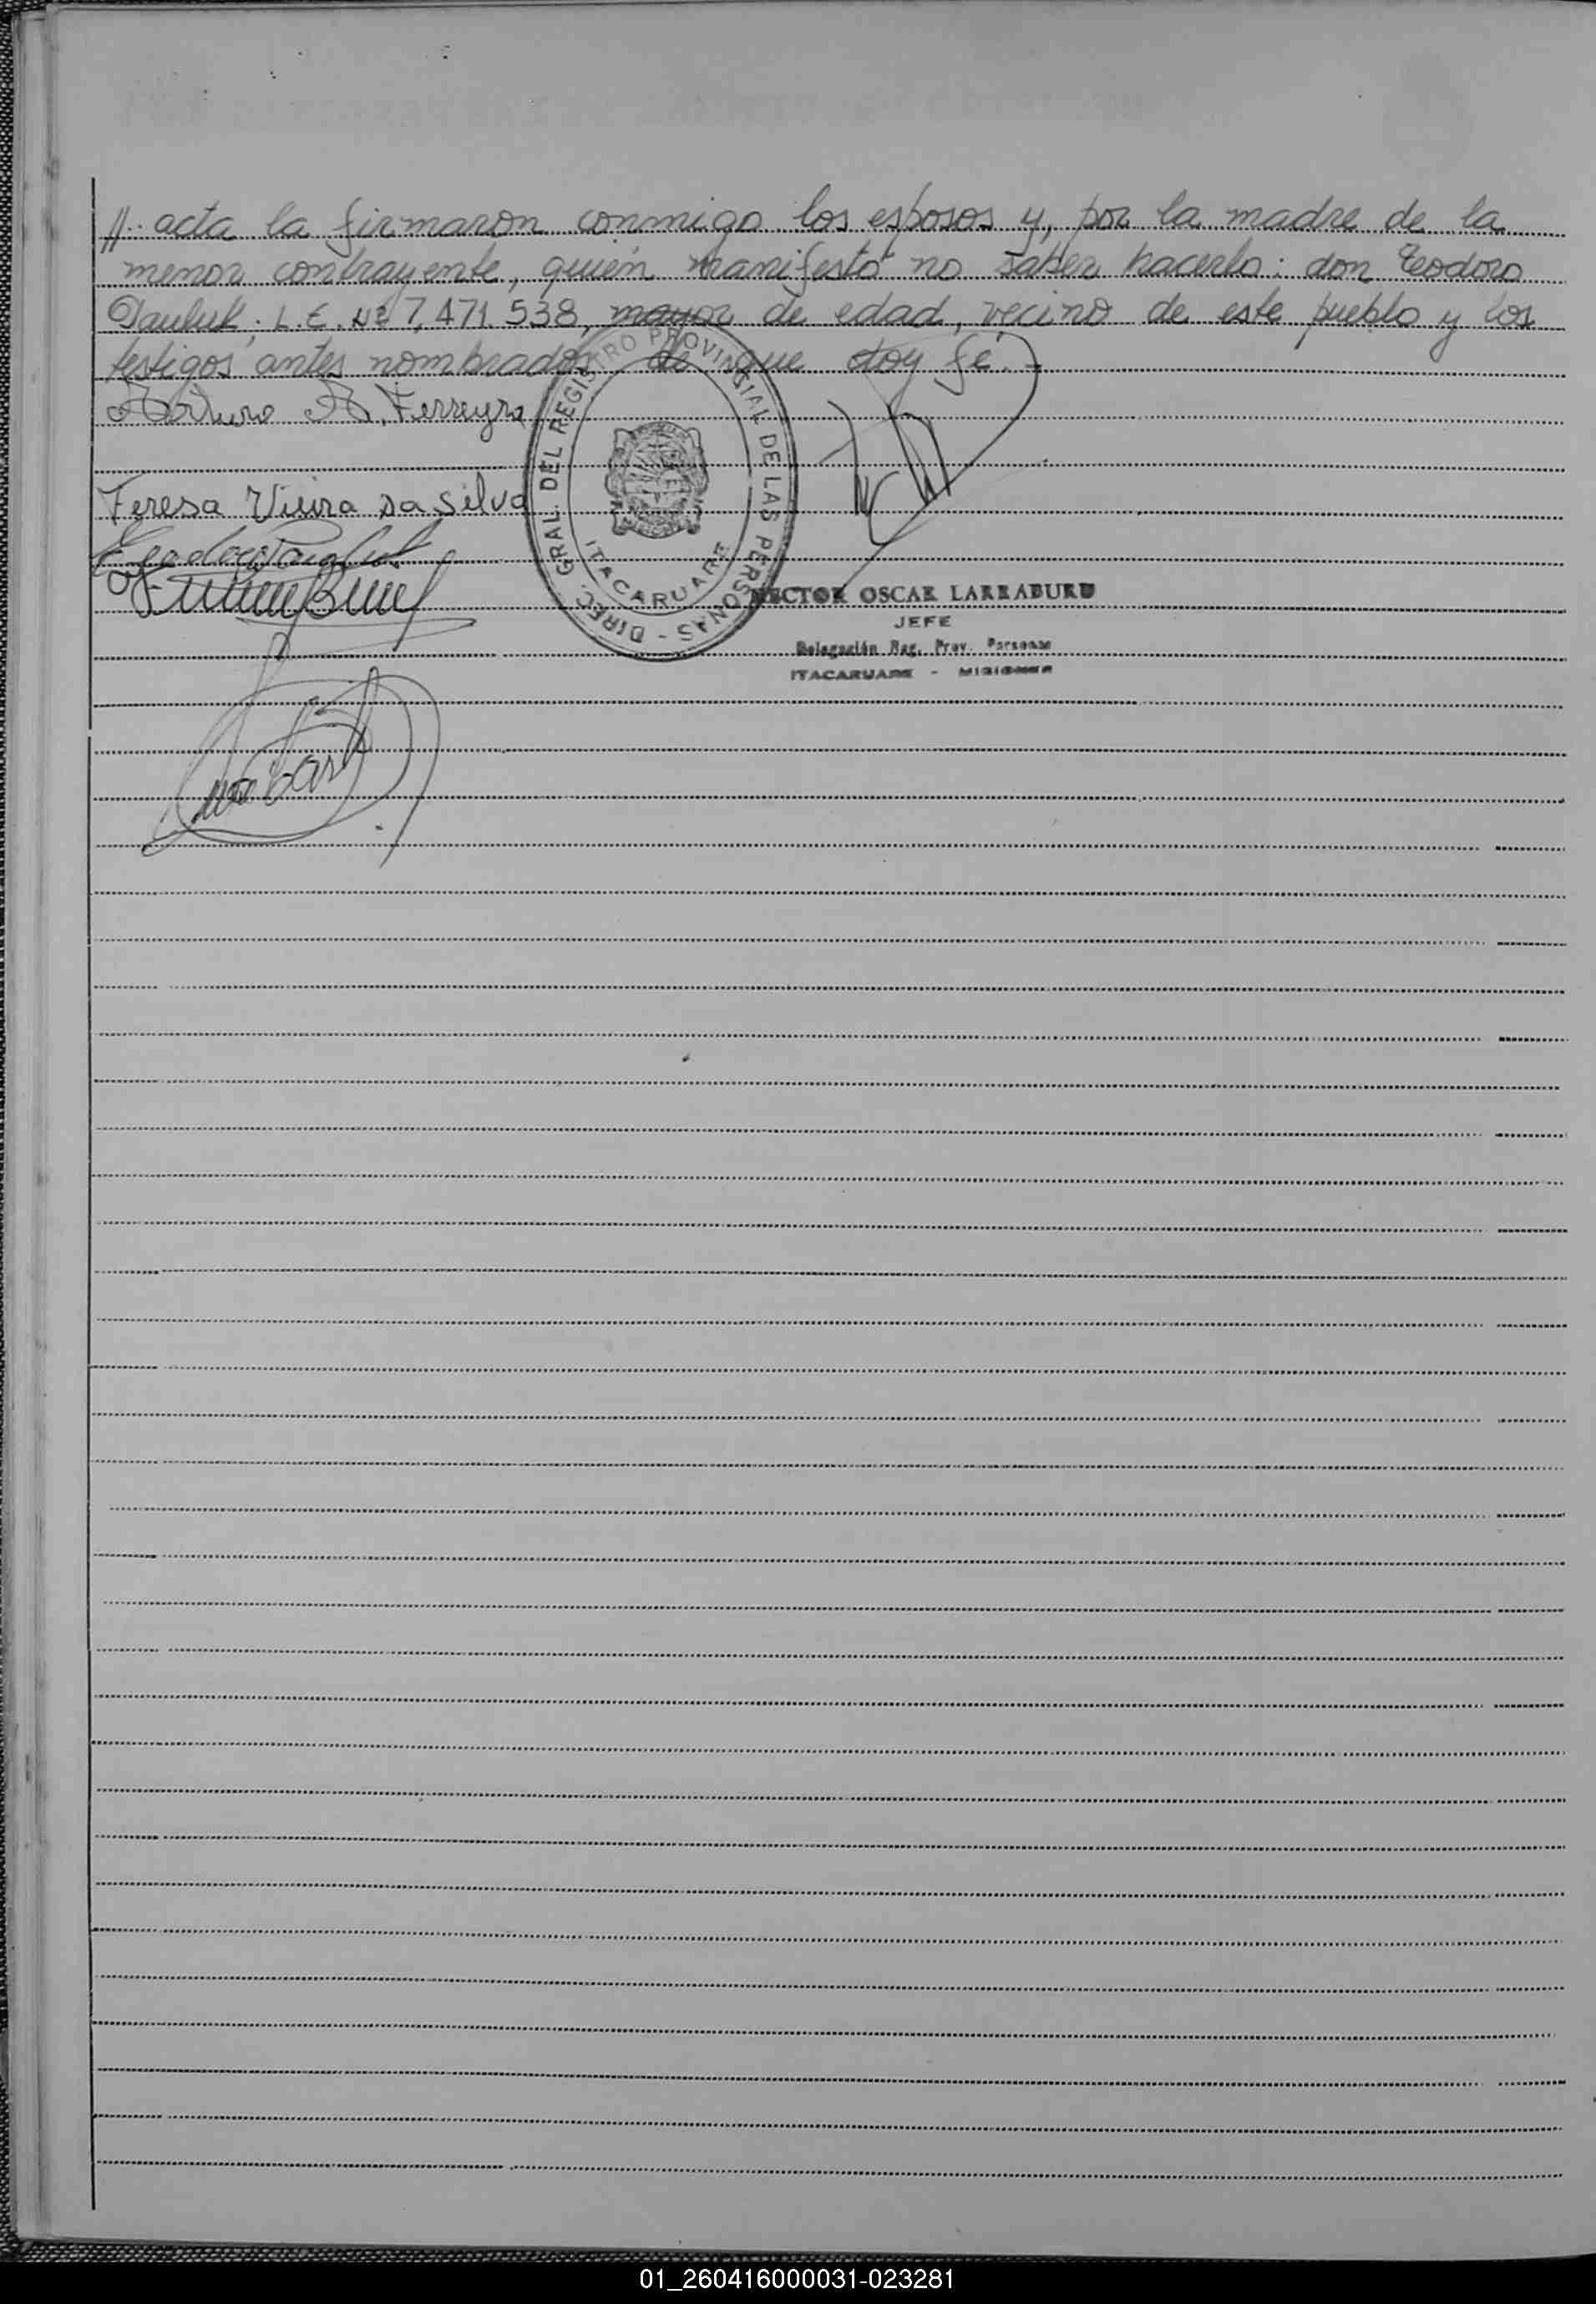 //.. acta la firmaron conmigo los esposos y, por la madre de la
menor contrayente, quién manifestó no saber hacerlo: don Teodoro
Pauluk; L.E. Nº 7.471.538, mayor de edad, vecino de este pueblo y los
testigos antes nombrados de que doy fé.-
Arturo A. Ferreyra
Teresa Vieira Da Silva
DIREC. GRAL. DEL REGISTRO PROVINCIAL DE LAS PERSONAS -
ITACARUARE
HECTOR OSCAR LARRABURU
JEFE
Delegación Reg. Prov. Personas
ITACARUARE - MISIONES
01_260416000031-023281